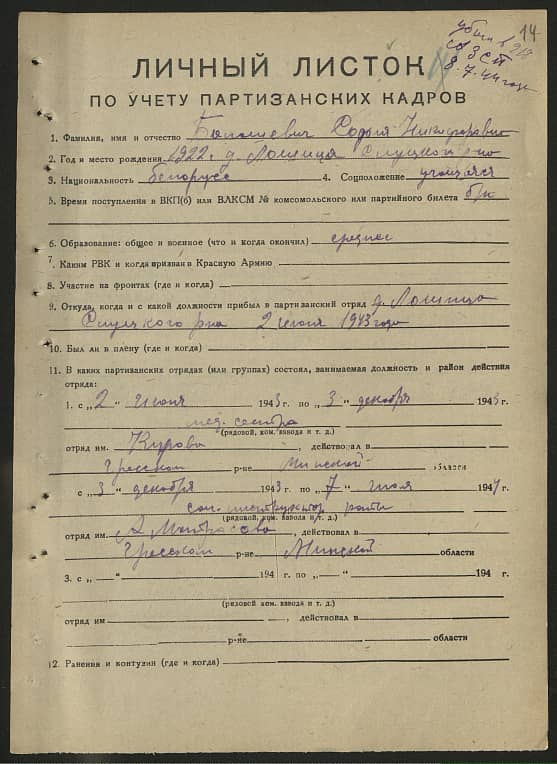 14
8.7.44 года
ЛИЧНЫЙ ЛИСТОК
ПО УЧЕТУ ПАРТИЗАНСКИХ КАДРОВ
1. Фамилия, имя и отчество София Никифоровна
2. Год и место рождения 1922 г. д. Лошница Слуцкого р-на
3. Национальность белорусс 4. Соцположение учащаяся
5. Время поступления в ВКП(б) или ВЛКСМ № комсомольского или партийного билета б/п
6. Образование: общее и военное (что и когда окончил) среднее
7. Каким РВК и когда призван в Красную Армию
8. Участие на фронтах (где и когда)
9. Откуда, когда и с какой должности прибыл в партизанский отряд д. Лошница
Слуцкого р-на 2 июня 1943 года
10. Был ли в плену (где и когда)
11. В каких партизанских отрядах (или группах) состоял, занимаемая должность и район действия
отряда:
1. с „ 2 “ июня 1943 г. по „ 3 “ декабря 1943
мед. сестра
(рядовой, ком. взвода и т. д.)
отряд им. Кирова, действовал в
Гресском р-не Минской области
с „ 3 “ декабря 1943 г. по „ 7 “ июля 1944 г.
сан. инструктор роты
(рядовой, ком. взвода и т. д.)
отряд им. А. Матросова, действовал в
Гресском р-не Минской области
3. с „ — “ 194 г. по „ — “ 194 г.
(рядовой ком. взвода и т. д.)
отряд им , действовал в
р-не области
12. Ранения и контузии (где и когда)